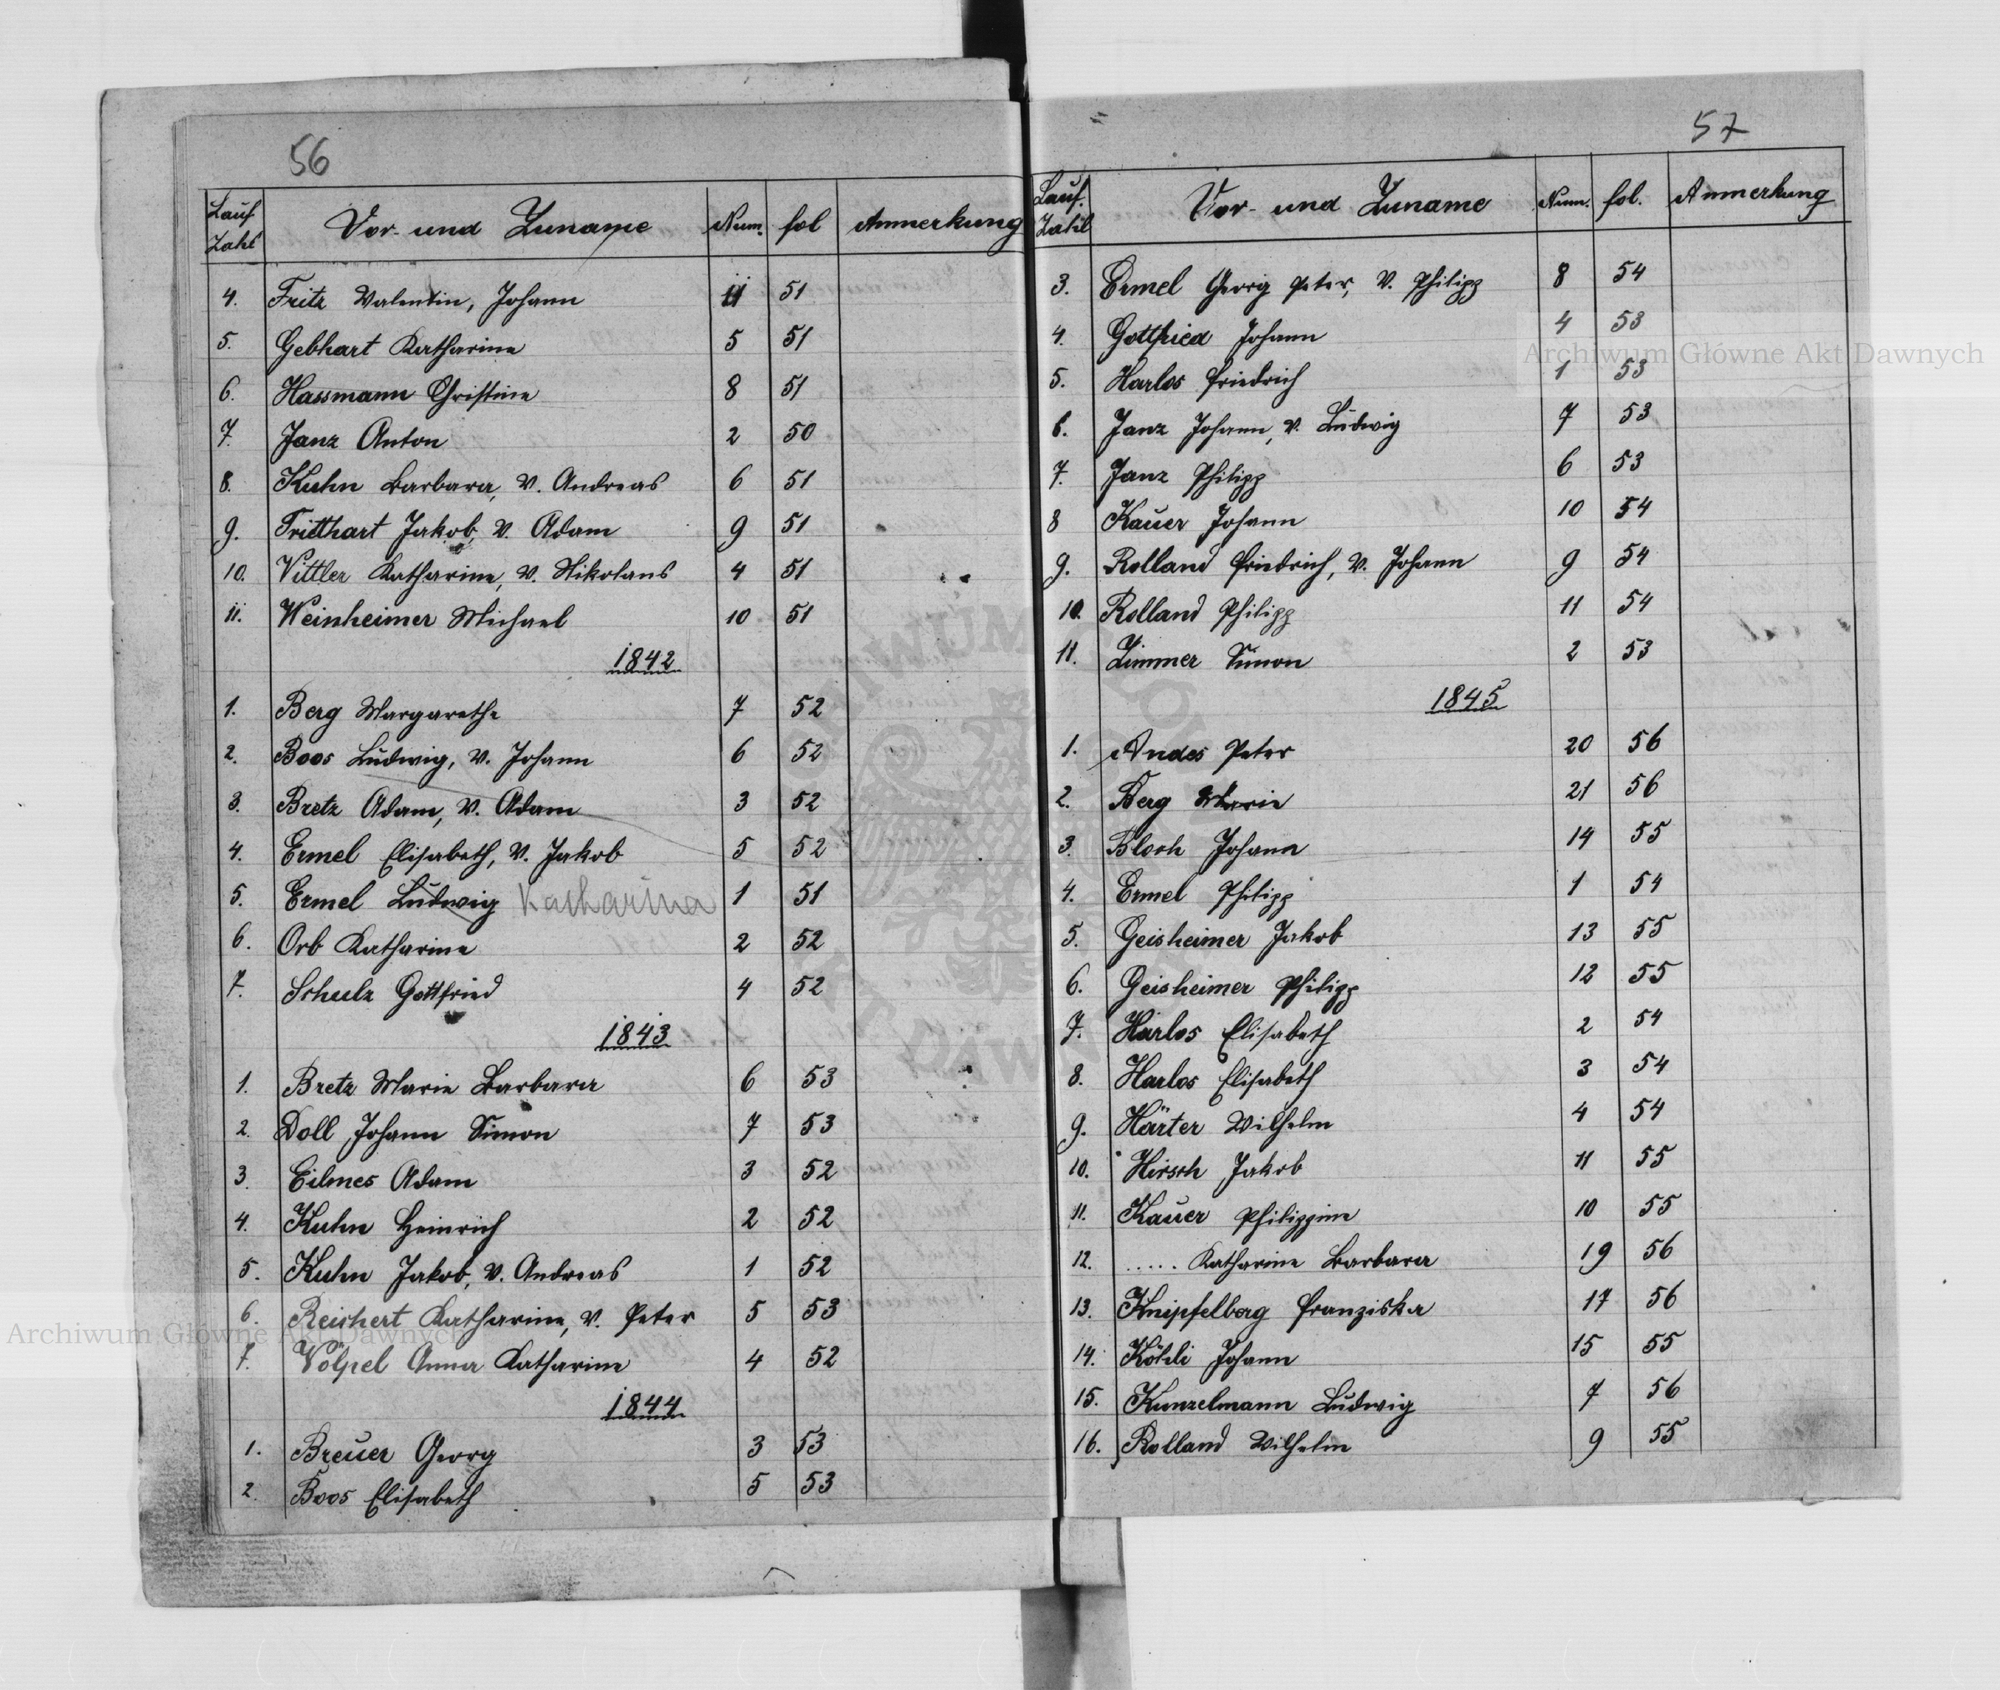 56
Lauf Zahl Vor- und Zuname Num. fol Anmerkung
4. Fritz Valentin, Johann 11 51
5. Gebhart Katharine 5 51
6. Hassmann Christine 8 51
7. Janz Anton 2 50
8. Kuhn Barbara, v. Andreas 6 51
9. Tritthart Jakob, v. Adam 9 51
10. Vittler Katharine, v. Nikolaus 4 51
11. Weinheimer Michael 10 51
1842
1. Berg Margarethe 7 52
2. Boos Ludwig, v. Johann 6 52
3. Bretz Adam, v. Adam 3 52
4. Ermel Elisabeth, v. Jakob 5 52
5. Ermel Ludwig Katharina 1 51
6. Orb Katharine 2 52
7. Schulz Gottfried 4 52
1843
1. Bretz Marie Barbara 6 53
2. Doll Johann Simon 7 53
3. Eilmes Adam 3 52
4. Kuhn Heinrich 2 52
5. Kuhn Jakob, v. Andreas 1 52
6. Reichert Katharine, v. Peter 5 53
7. Völpel Anna Katharine 4 52
1844
1. Breuer Georg 3 53
2. Boos Elisabeth 5 53
57
Lauf. Zahl Vor- und Zuname Num. fol. Anmerkung
3. Ermel Georg Peter, v. Philipp 8 54
4. Gottfried Johann 4 53
5. Harlos Friedrich 1 53
6. Janz Johann, v. Ludwig 7 53
7. Janz Philipp 6 53
8 Kauer Johann 10 54
9. Rolland Friedrich, v. Johann 9 54
10. Rolland Philipp 11 54
11. Zimmer Simon 2 53
1845
1. Andes Peter 20 56
2. Berg Marie 21 56
3. Bloch Johann 14 55
4. Ermel Philipp 1 54
5. Geisheimer Jakob 13 55
6. Geisheimer Philipp 12 55
7. Harlos Elisabeth 2 54
8. Harlos Elisabeth 3 54
9. Härter Wilhelm 4 54
10. Hirsch Jakob 11 55
11. Kauer Philippine 10 55
12. ..... Katharine Barbara 19 56
13. Knipfelberg Franziska 17 56
14. Köhli Johann 15 55
15. Kunzelmann Ludwig 7 56
16. Rolland Wilhelm 9 55
Archiwum Główne Akt Dawnych
Archiwum Główne Akt Dawnych